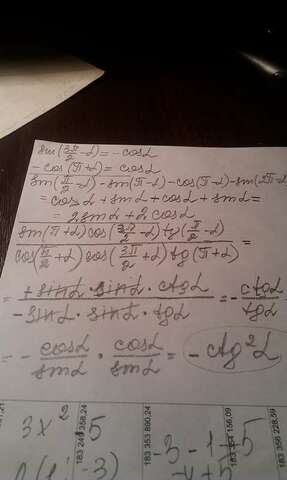 sin(3π/2 - α) = - cosα
- cos(π+α) = cosα
sin(π/2 - α) - sin(π-α) - cos(π-α) - sin(2π-α)
= cosα + sinα + cosα + sinα =
= 2 sinα + 2 cosα
sin(π+α) cos(3π/2 - α) tg(π/2 - α)
cos(π/2 + α) cos(3π/2 + α) tg(π+α) =
= + sinα · sinα · ctgα / - sinα · sinα · tgα = - ctgα / tgα
= - cosα / sinα · cosα / sinα = - ctg²α
183 249 358,24
183 353 890,24
183 354 156,09
183 356 228,59
3x² 5
-3 - 1 + 5